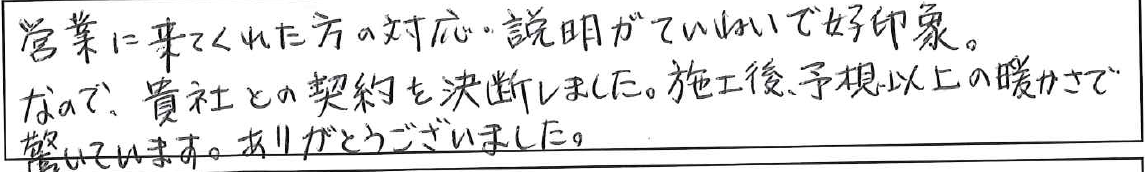 営業に来てくれた方の対応・説明がていねいで好印象。
なので、貴社との契約を決断しました。施工後、予想以上の暖かさで
驚いています。ありがとうございました。